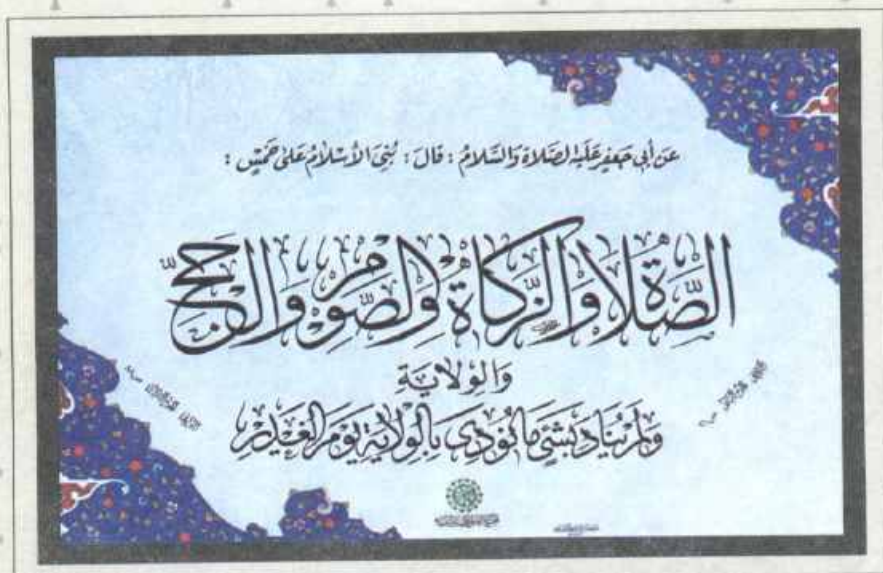 عَن أَبِي جَعفَرٍ عَلَيْهِ الصَّلَاة وَالسَّلامُ : قَالَ : بُنِيَ الأُسْلَامُ عَلىٰ خَمْسٍ :
الصَّلَاة وَالزَّكَاةُ وَالصَّوْمِ وَالْحَجِّ
وَالوِلَايَةِ
وَلَم يُنَادِ بَشَئٍ مَا نُودِيَ بِالوِلَايَةِ يَوْمَ الغَدِيرِ